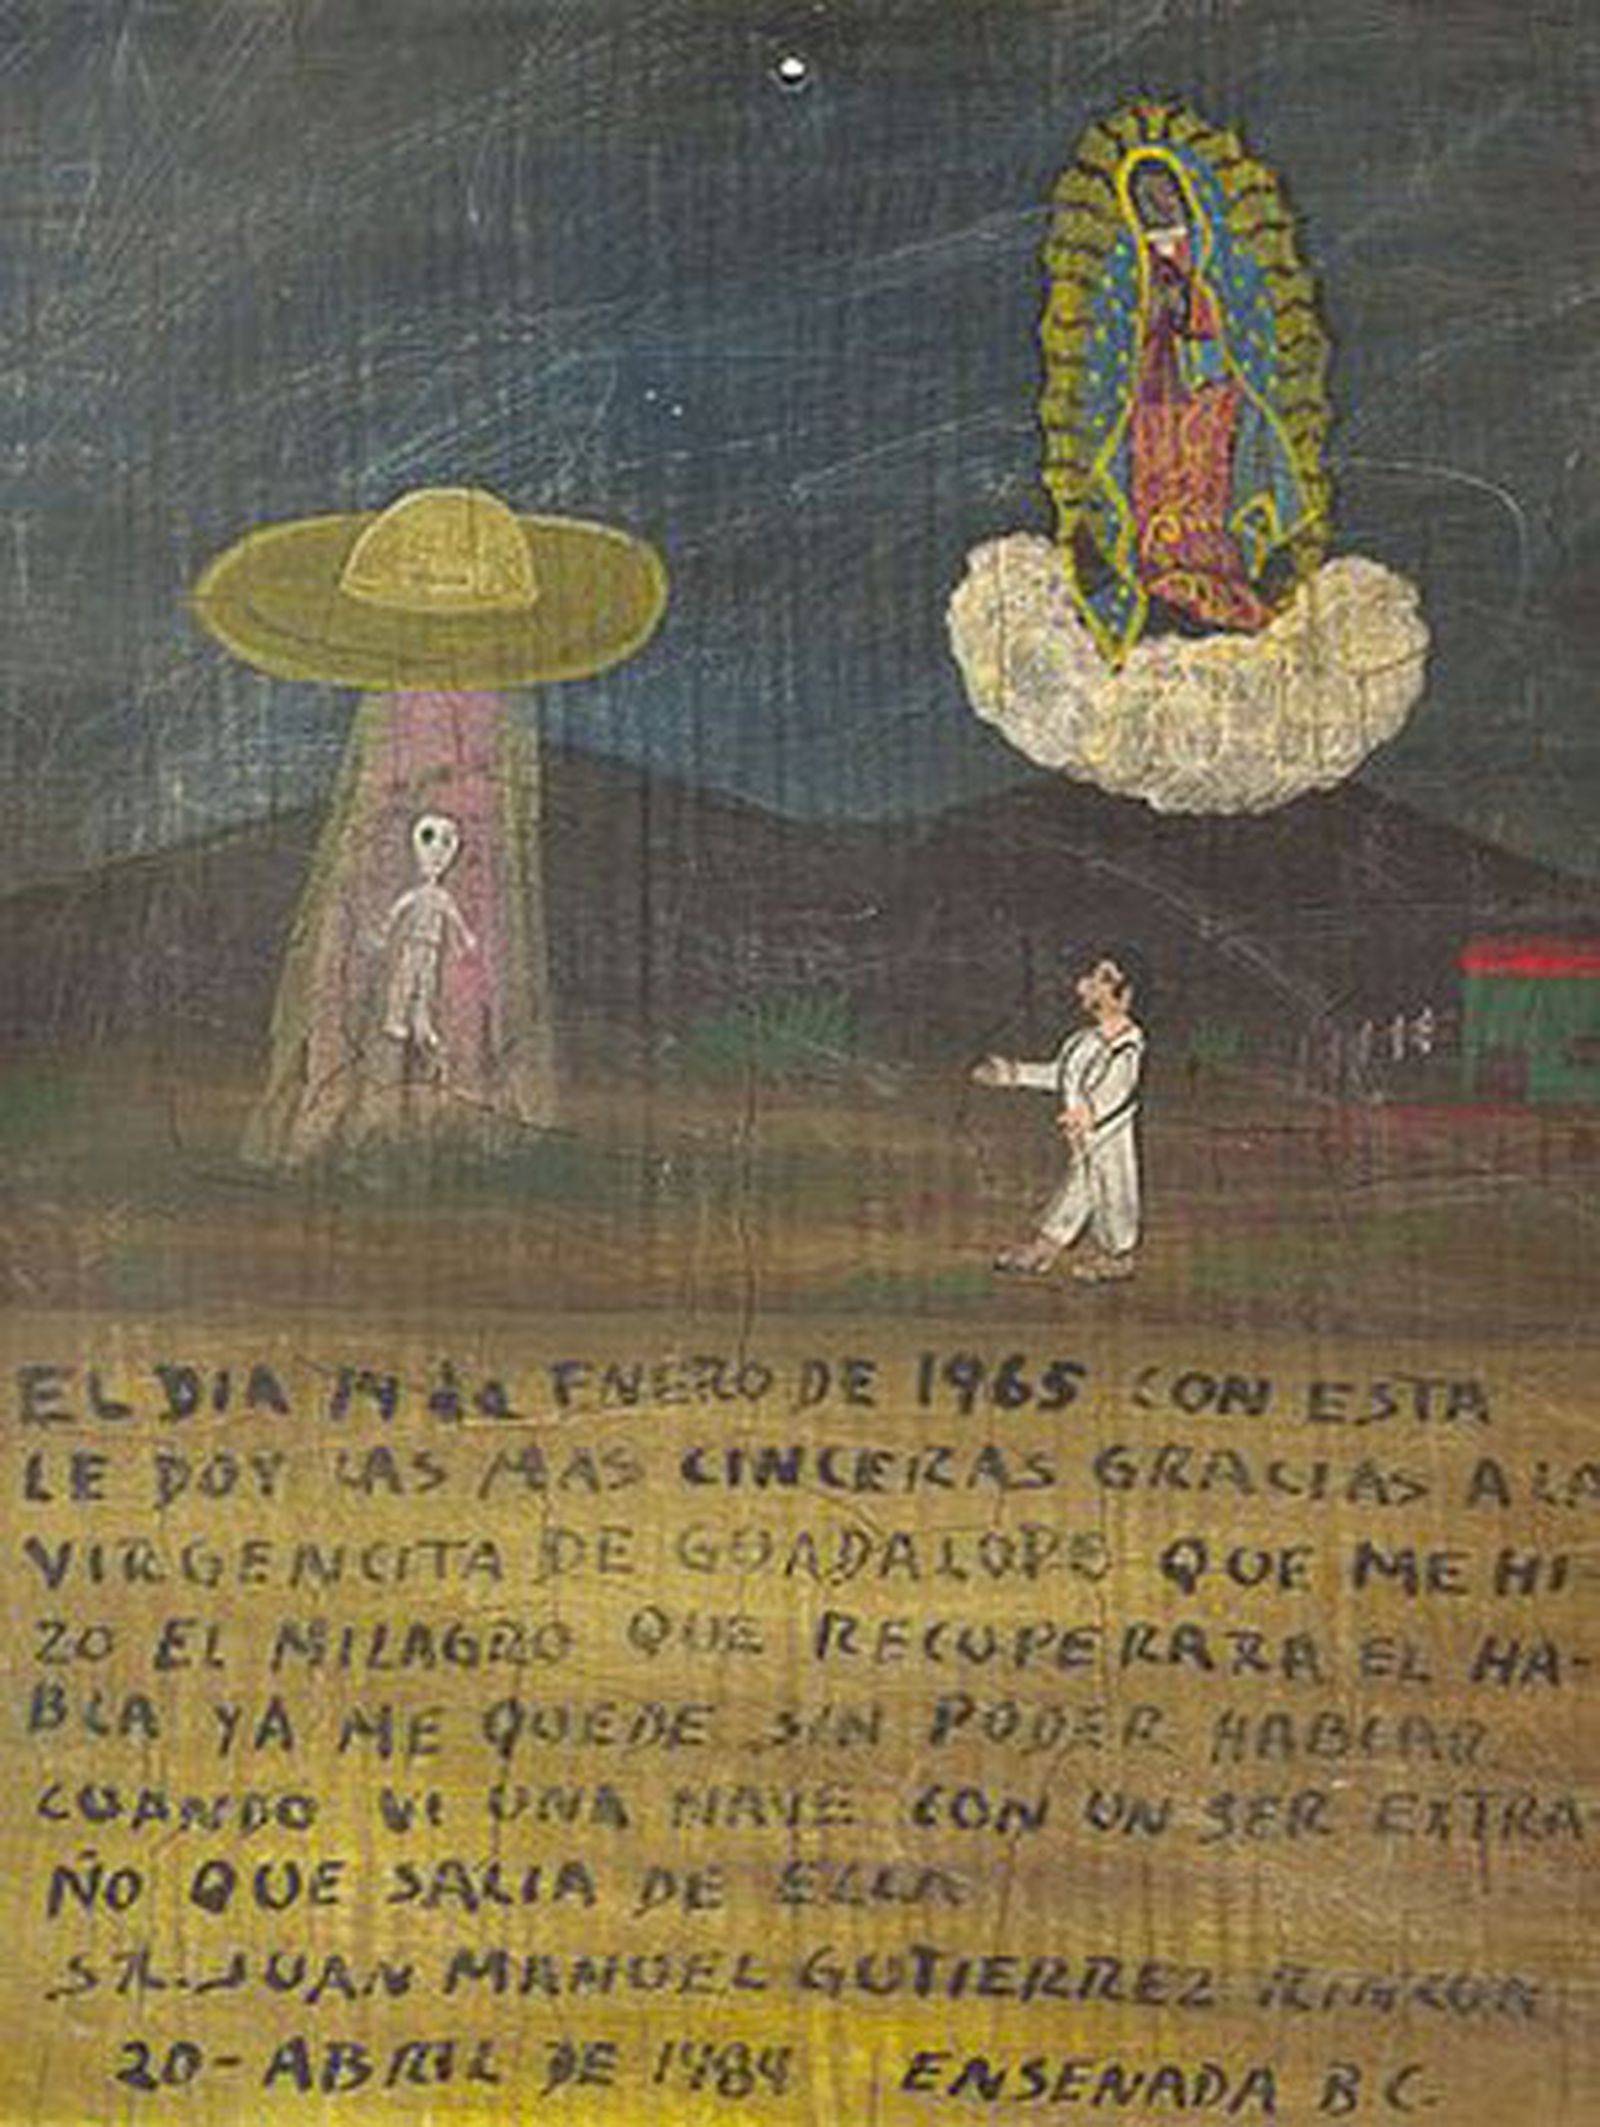 EL DIA 14 de ENERO DE 1965 CON ESTA
LE DOY LAS MAS CINCERAS GRACIAS A LA
VIRGENCITA DE GUADALUPE QUE ME HI-
ZO EL MILAGRO QUE RECUPERARA EL HA-
BLA YA ME QUEDE SIN PODER HABLAR
CUANDO VI UNA NAVE CON UN SER EXTRA-
ÑO QUE SALIA DE ELLA
SR. JUAN MANUEL GUTIERREZ RINCON
20-ABRIL DE 1984 ENSENADA B C.